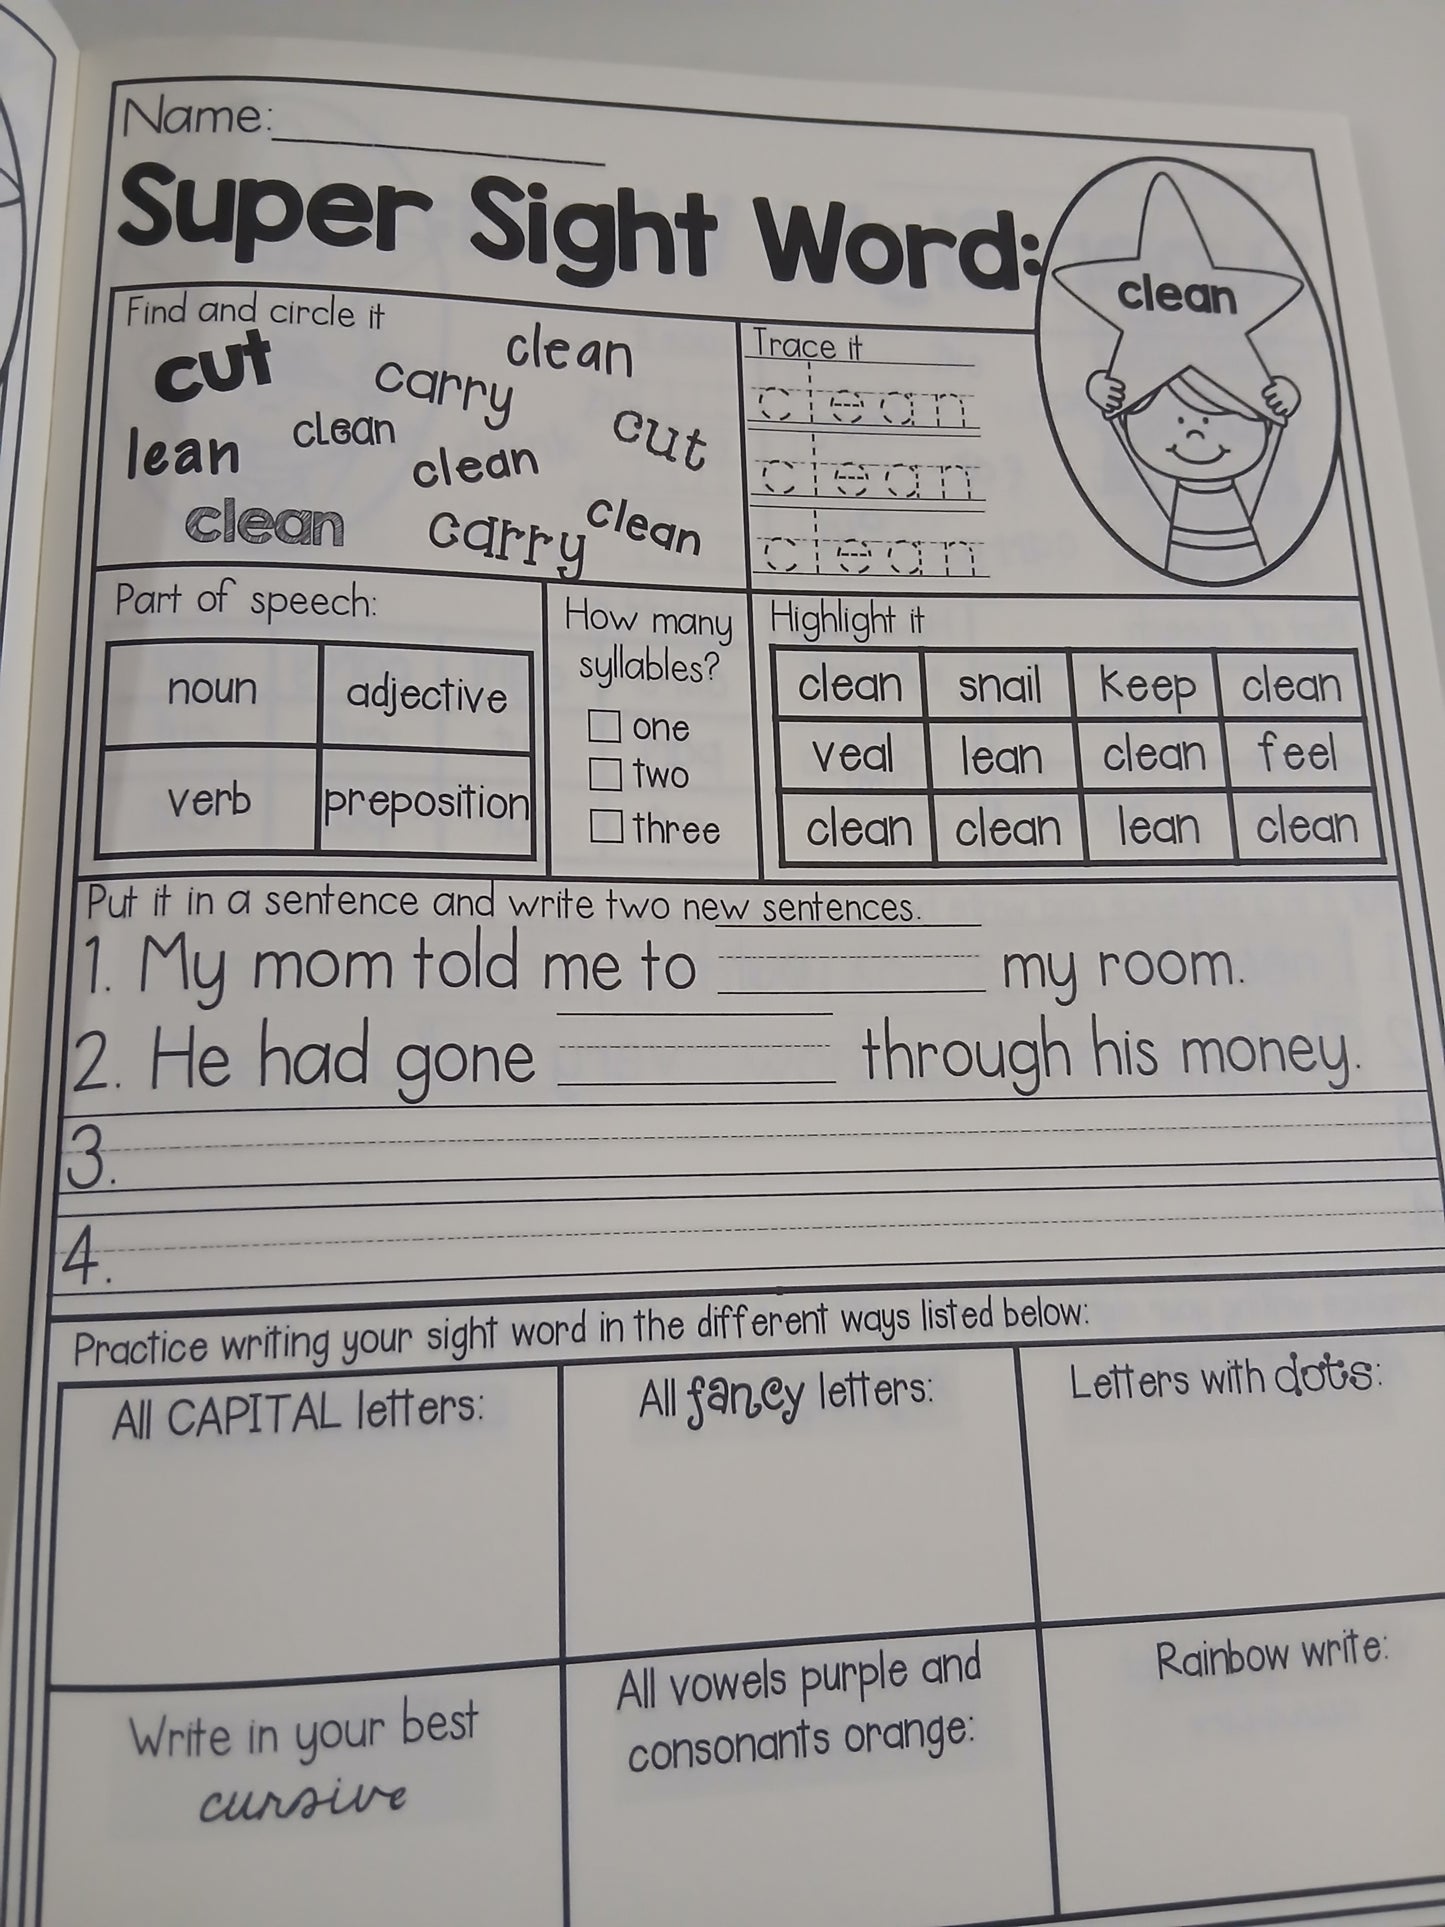 Name:
Super Sight Word:
clean
Find and circle it
cut
clean
carry
lean
clean
cut
clean
clean
carry
clean
Trace it
clean
clean
clean
Part of speech:
noun adjective
verb preposition
How many
syllables?
one
two
three
Highlight it
clean snail keep clean
veal lean clean feel
clean clean lean clean
Put it in a sentence and write two new sentences.
1. My mom told me to my room.
2. He had gone through his money.
3.
4.
Practice writing your sight word in the different ways listed below:
All CAPITAL letters:
All fancy letters:
Letters with dots:
Write in your best
cursive
All vowels purple and
consonants orange:
Rainbow write: